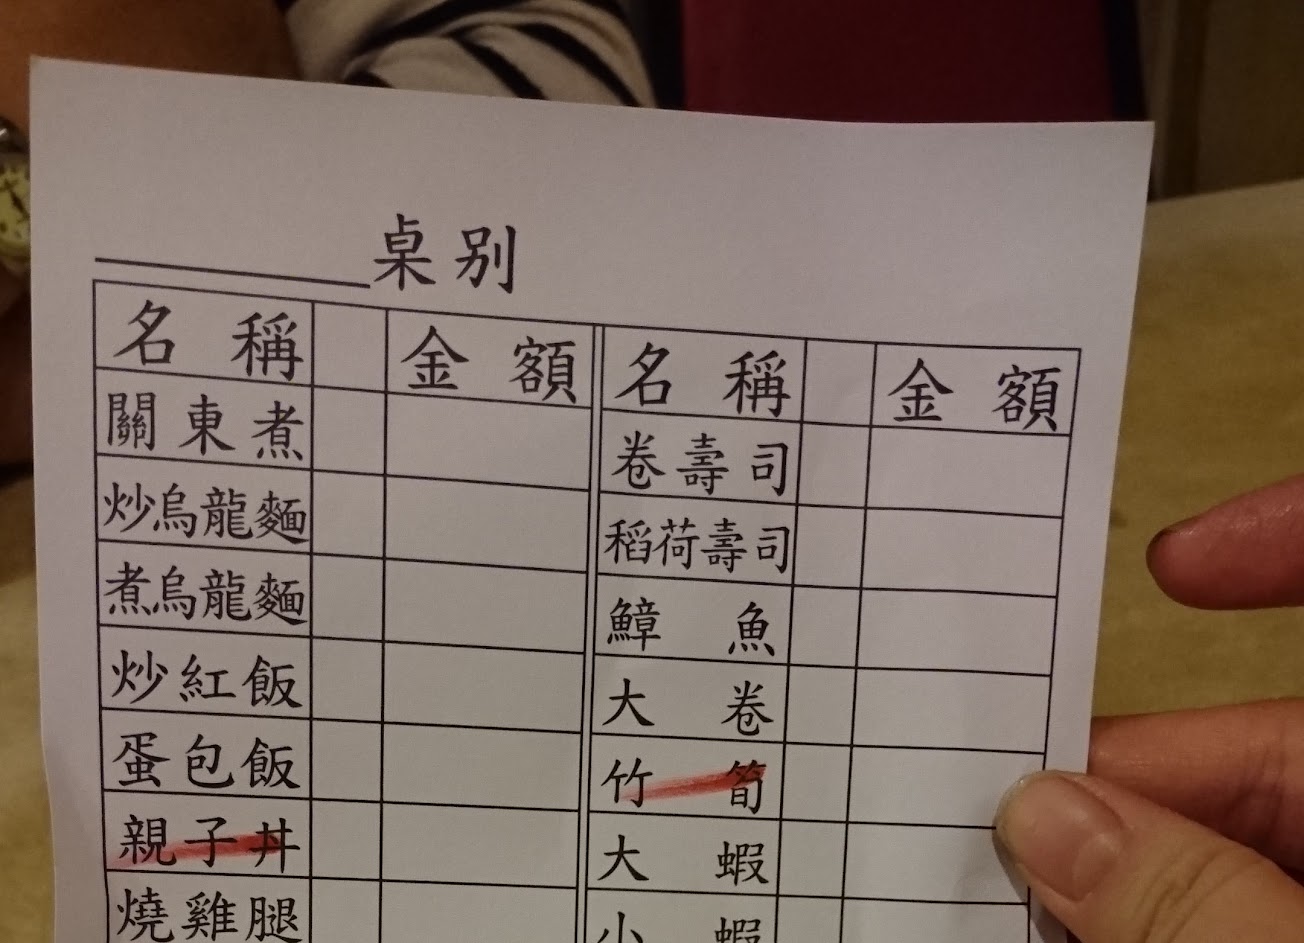 桌別
名稱 金額 名稱 金額
關東煮 卷壽司
炒烏龍麵 稻荷壽司
煮烏龍麵 鱆魚
炒紅飯 大卷
蛋包飯 竹筍
親子丼 大蝦
燒雞腿 小蝦